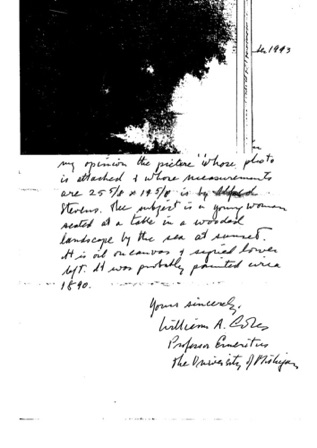 1993
my opinion the picture whose photo
is attached & whose measurements
are 25 5/8 x 19 5/8 is by Alfred
Stevens. The subject is a young woman
seated at a table in a wooded
landscape by the sea at sunset.
It is oil on canvas & signed lower
left. It was probably painted circa
1890.
Yours sincerely,
William A. Coles
Professor Emeritus
The University of Michigan